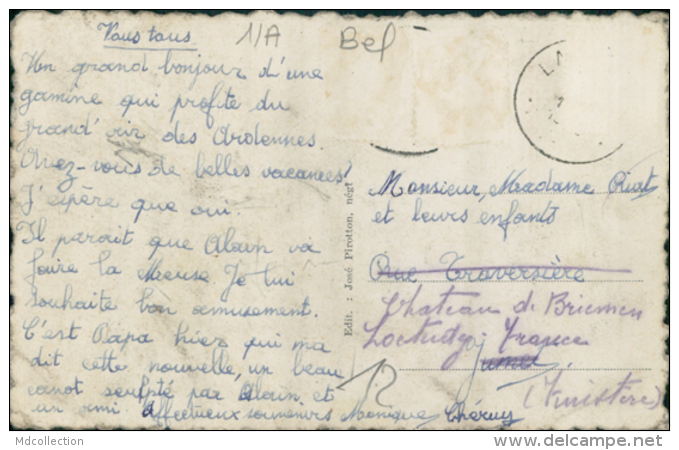 Vous tous
1/A
Bel
LA
Un grand bonjour d'une
gamine qui profite du
grand'air des Ardennes.
Avez-vous de belles vacances!
J'espère que oui.
Il paraît que Alain va
faire la Meuse. Je lui
souhaite bon amusement.
C'est Papa hier qui m'a
dit cette nouvelle, un beau
canot sculpté par Alain et
un ami. Affectueux souvenirs Monique
Edit. : José Pirotton, négt
Monsieur, Madame
et leurs enfants
Rue Traversière
Chateau de
Loctudy France
Jumet
(Finistère)
12
Mdcollection
www.delcampe.net